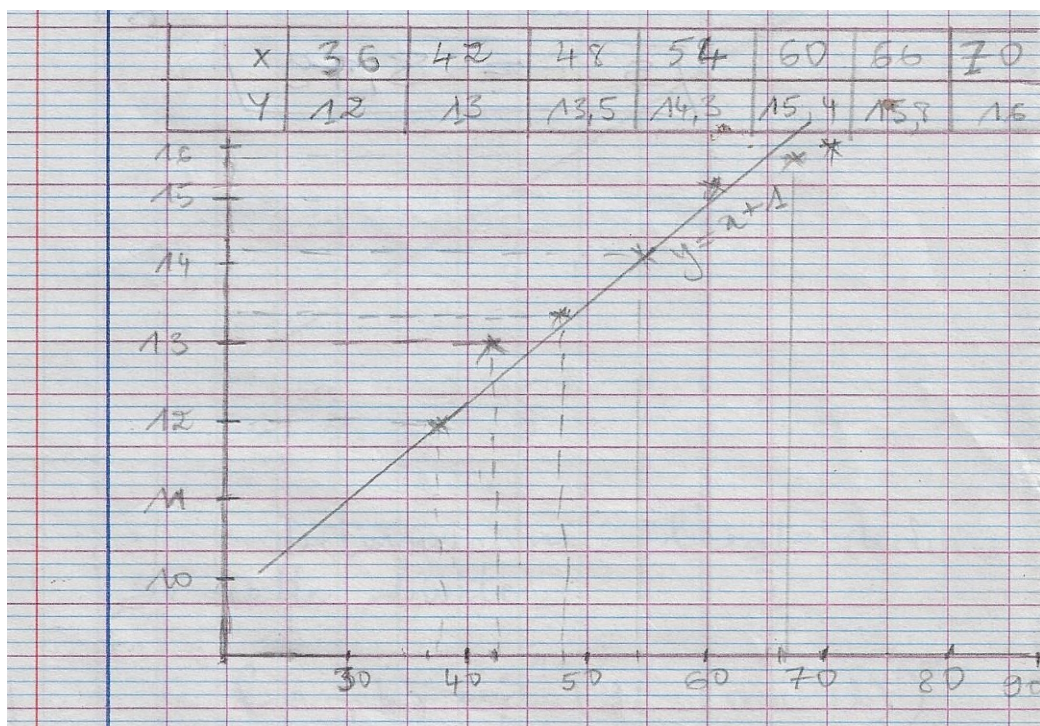 x 36 42 48 54 60 66 70
Y 12 13 13,5 14,3 15,4 15,8 16
16
15
14
13
12
11
10
y = x + 1
30 40 50 60 70 80 90